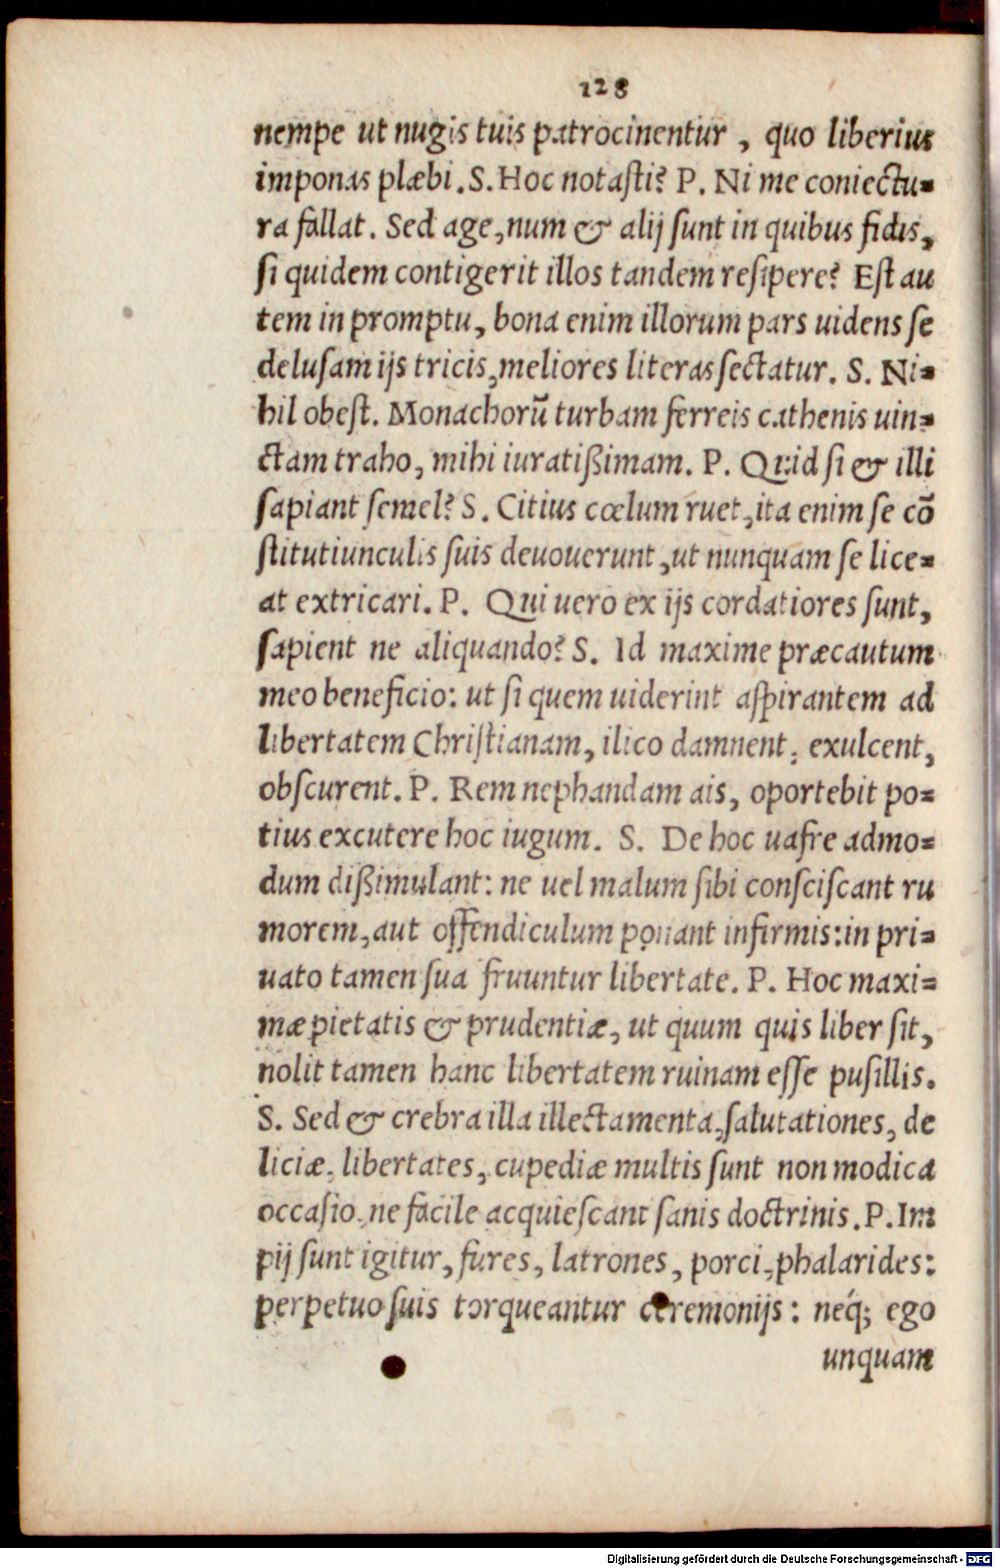 128
nempe ut nugis tuis patrocinentur, quo liberius
imponas plæbi. S. Hoc notaſti? P. Ni me coniectu=
ra fallat. Sed age, num & alij ſunt in quibus fidis,
ſi quidem contigerit illos tandem reſipere? Eſt au
tem in promptu, bona enim illorum pars uidens ſe
deluſam ijs tricis, meliores literas ſectatur. S. Ni=
hil obeſt. Monachorũ turbam ferreis cathenis uin=
ctam traho, mihi iuratißimam. P. Quid ſi & illi
ſapiant ſemel? S. Citius cœlum ruet, ita enim ſe cõ
ſtitutiunculis ſuis deuouerunt, ut nunquam ſe lice=
at extricari. P. Qui uero ex ijs cordatiores ſunt,
ſapient ne aliquando? S. Id maxime præcautum
meo beneficio: ut ſi quem uiderint aſpirantem ad
libertatem Chriſtianam, ilico damnent, exulcent,
obſcurent. P. Rem nephandam ais, oportebit po=
tius excutere hoc iugum. S. De hoc uafre admo=
dum dißimulant: ne uel malum ſibi conſciſcant ru
morem, aut offendiculum ponant infirmis: in pri=
uato tamen ſua fruuntur libertate. P. Hoc maxi=
mæ pietatis & prudentiæ, ut quum quis liber ſit,
nolit tamen hanc libertatem ruinam eſſe puſillis.
S. Sed & crebra illa illectamenta, ſalutationes, de
liciæ, libertates, cupediæ multis ſunt non modica
occaſio, ne facile acquieſcant ſanis doctrinis. P. Im
pij ſunt igitur, fures, latrones, porci, phalarides:
perpetuo ſuis torqueantur ceremonijs: neq́; ego
unquam
Digitalisierung gefördert durch die Deutsche Forschungsgemeinschaft - DFG